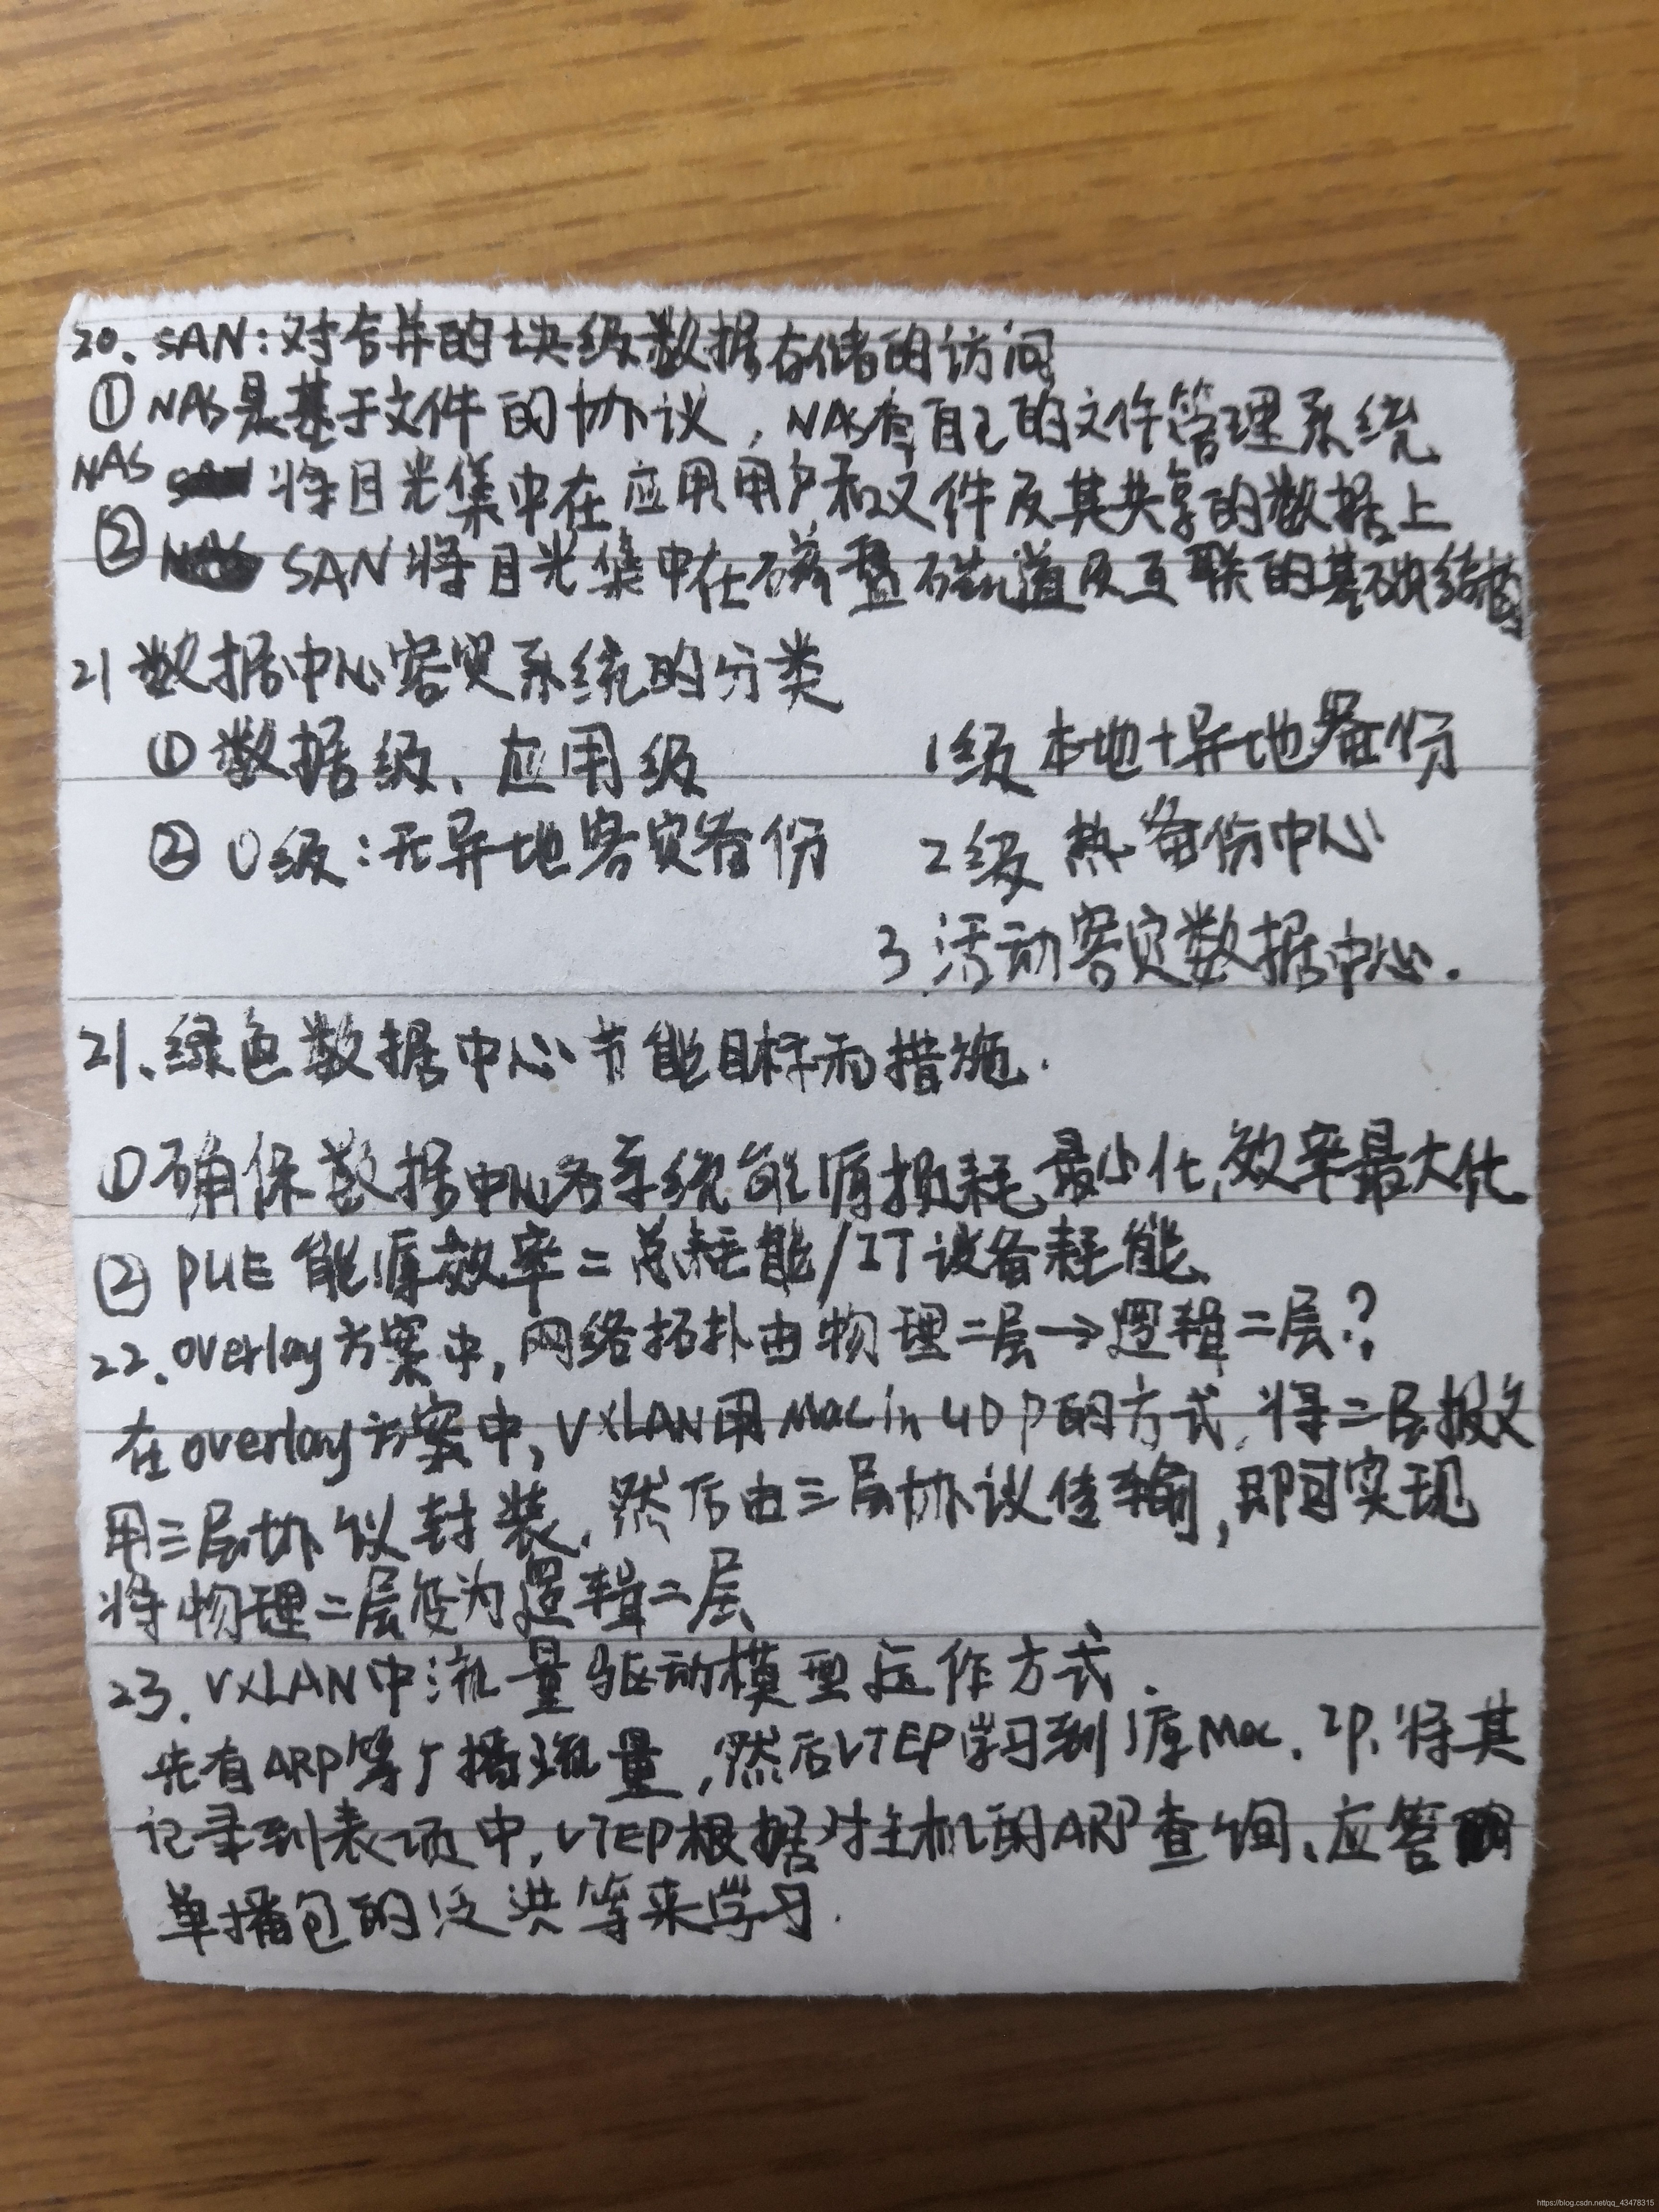 20、SAN:对合并的块级数据存储的访问
①NAS是基于文件的协议，NAS有自己的文件管理系统
NAS 将目光集中在应用用户和文件及其共享的数据上
② SAN将目光集中在磁盘磁道及互联的基础结构
21 数据中心容灾系统的分类
①数据级、应用级 1级 本地+异地备份
②0级:无异地容灾备份 2级 热备份中心
3.活动容灾数据中心.
21、绿色数据中心节能目标和措施.
①确保数据中心各系统能源损耗最小化,效率最大化
② PUE 能源效率=总耗能/IT设备耗能
22.overlay方案中,网络拓扑由物理二层→逻辑二层?
在overlay方案中,VXLAN用Mac in UDP的方式,将二层报文
用三层协议封装,然后由三层协议传输,即可实现
将物理二层变为逻辑二层
23.VXLAN中流量驱动模型运作方式.
先有ARP等广播流量,然后VTEP学习到源Mac、IP、将其
记录到表项中,VTEP根据对主机的ARP查询、应答
单播包的泛洪等来学习.
https://blog.csdn.net/qq_43478315